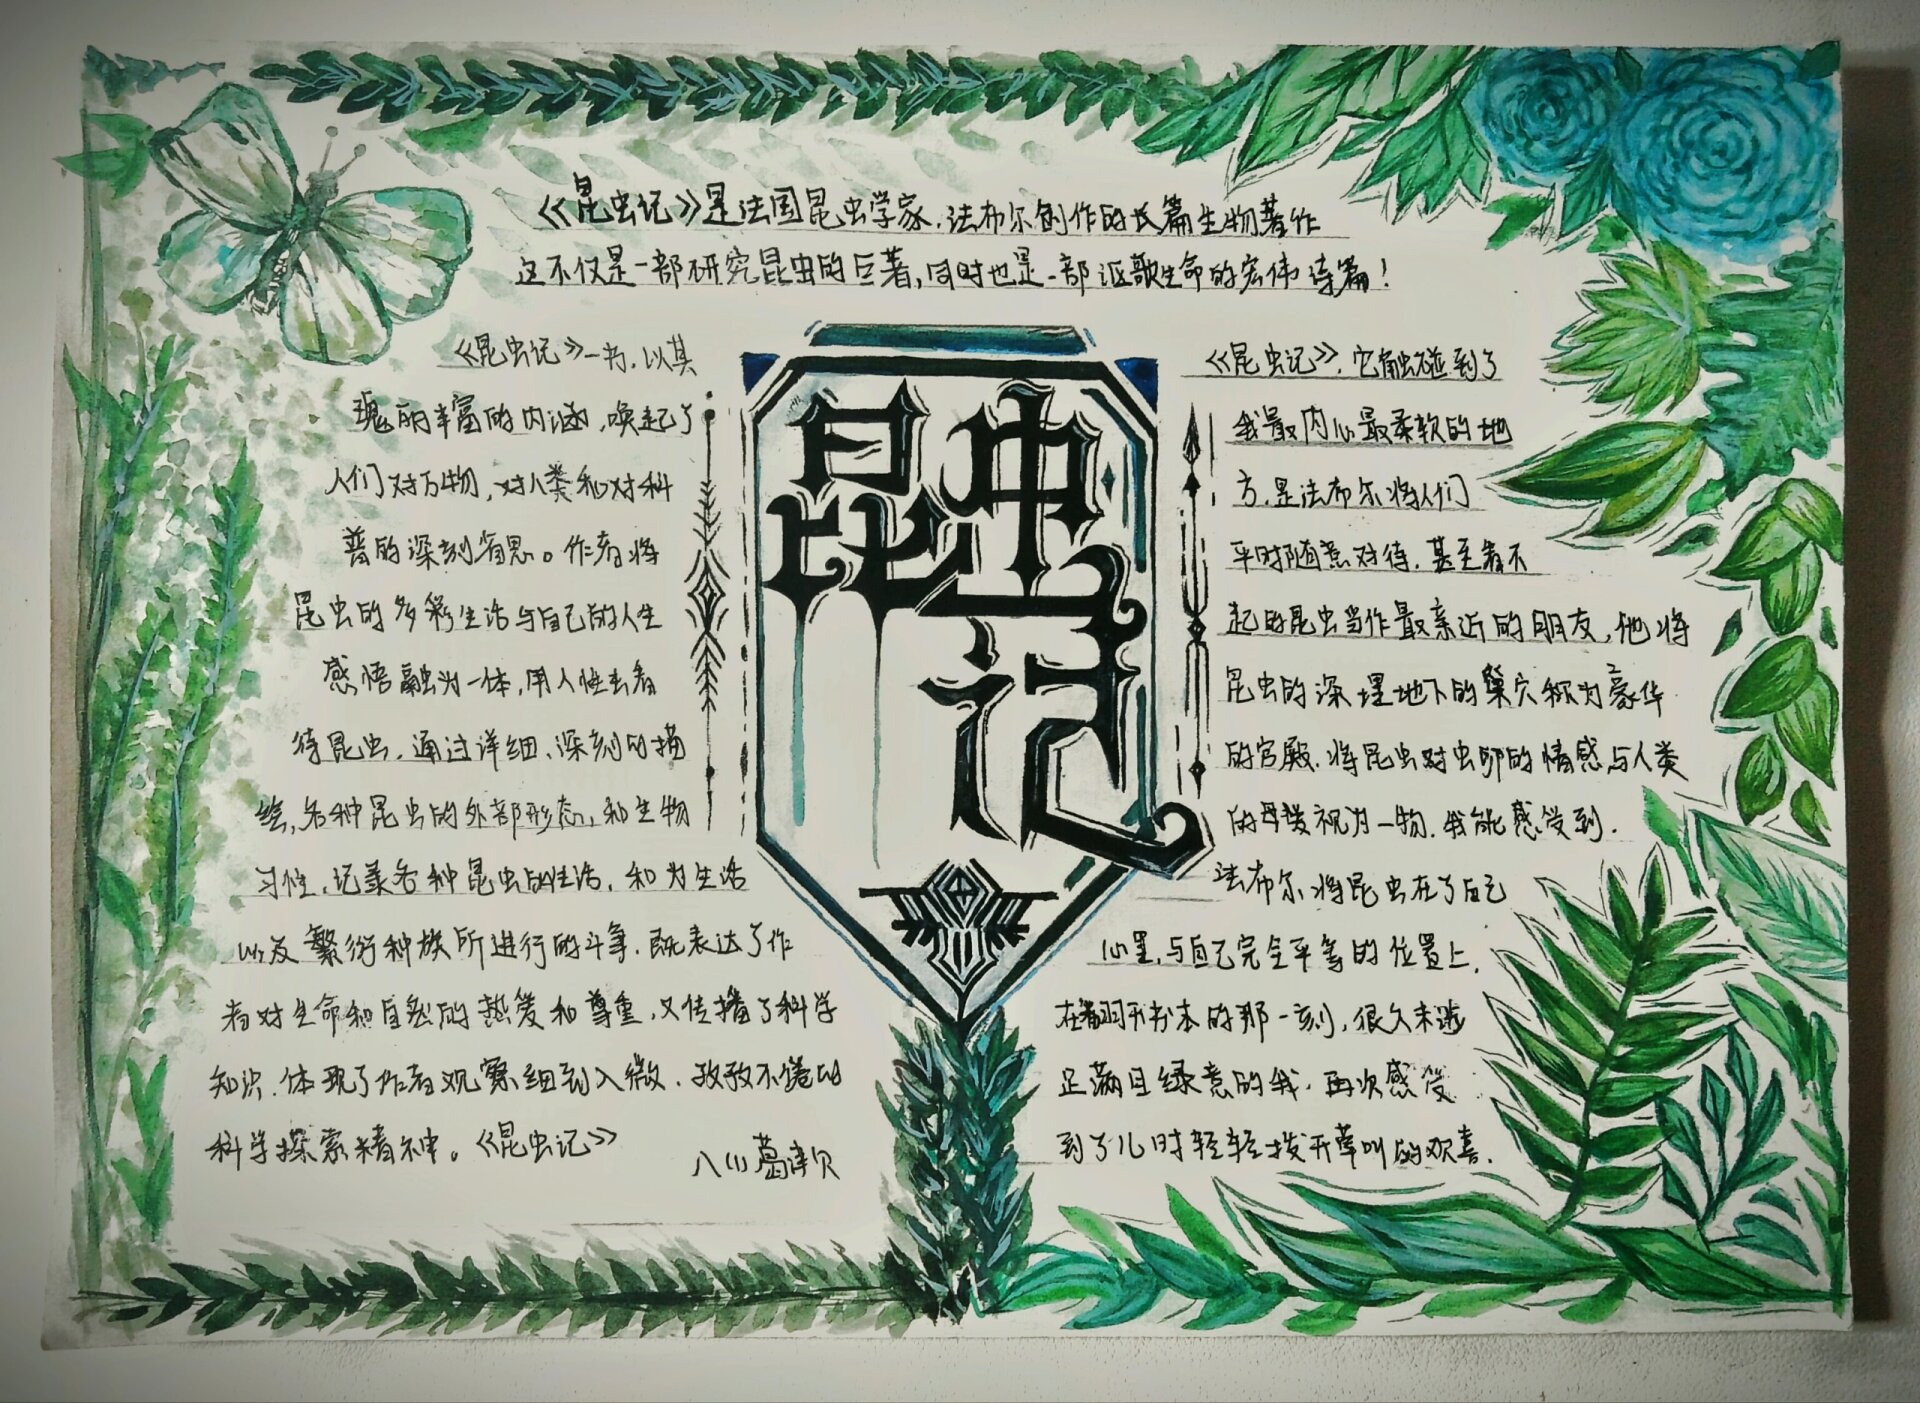 《昆虫记》是法国昆虫学家,法布尔创作的长篇生物著作
这不仅是一部研究昆虫的巨著,同时也是一部讴歌生命的宏伟诗篇!
《昆虫记》一书,以其
瑰丽丰富的内涵,唤起了
人们对万物,对人类和对科
普的深刻省思。作者将
昆虫的多彩生活与自己的人生
感悟融为一体,用人性去看
待昆虫,通过详细、深刻的描
绘,各种昆虫的外部形态,和生物
习性,记录各种昆虫的生活,和为生活
以及繁衍种族所进行的斗争,既表达了作
者对生命和自然的热爱和尊重,又传播了科学
知识,体现了作者观察细致入微,孜孜不倦的
科学探索精神。《昆虫记》
八(1)葛
昆虫记
《昆虫记》,它触碰到了
我最内心最柔软的地
方,是法布尔将人们
平时随意对待,甚至看不
起的昆虫当作最亲近的朋友,他将
昆虫的深埋地下的巢穴称为豪华
的宫殿,将昆虫对虫卵的情感与人类
的母爱视为一物,我能感受到,
法布尔将昆虫在了自己
心里,与自己完全平等的位置上,
在翻开书本的那一刻,很久未涉
足满目绿意的我,再次感受
到了儿时轻轻拨开草叶的欢喜.